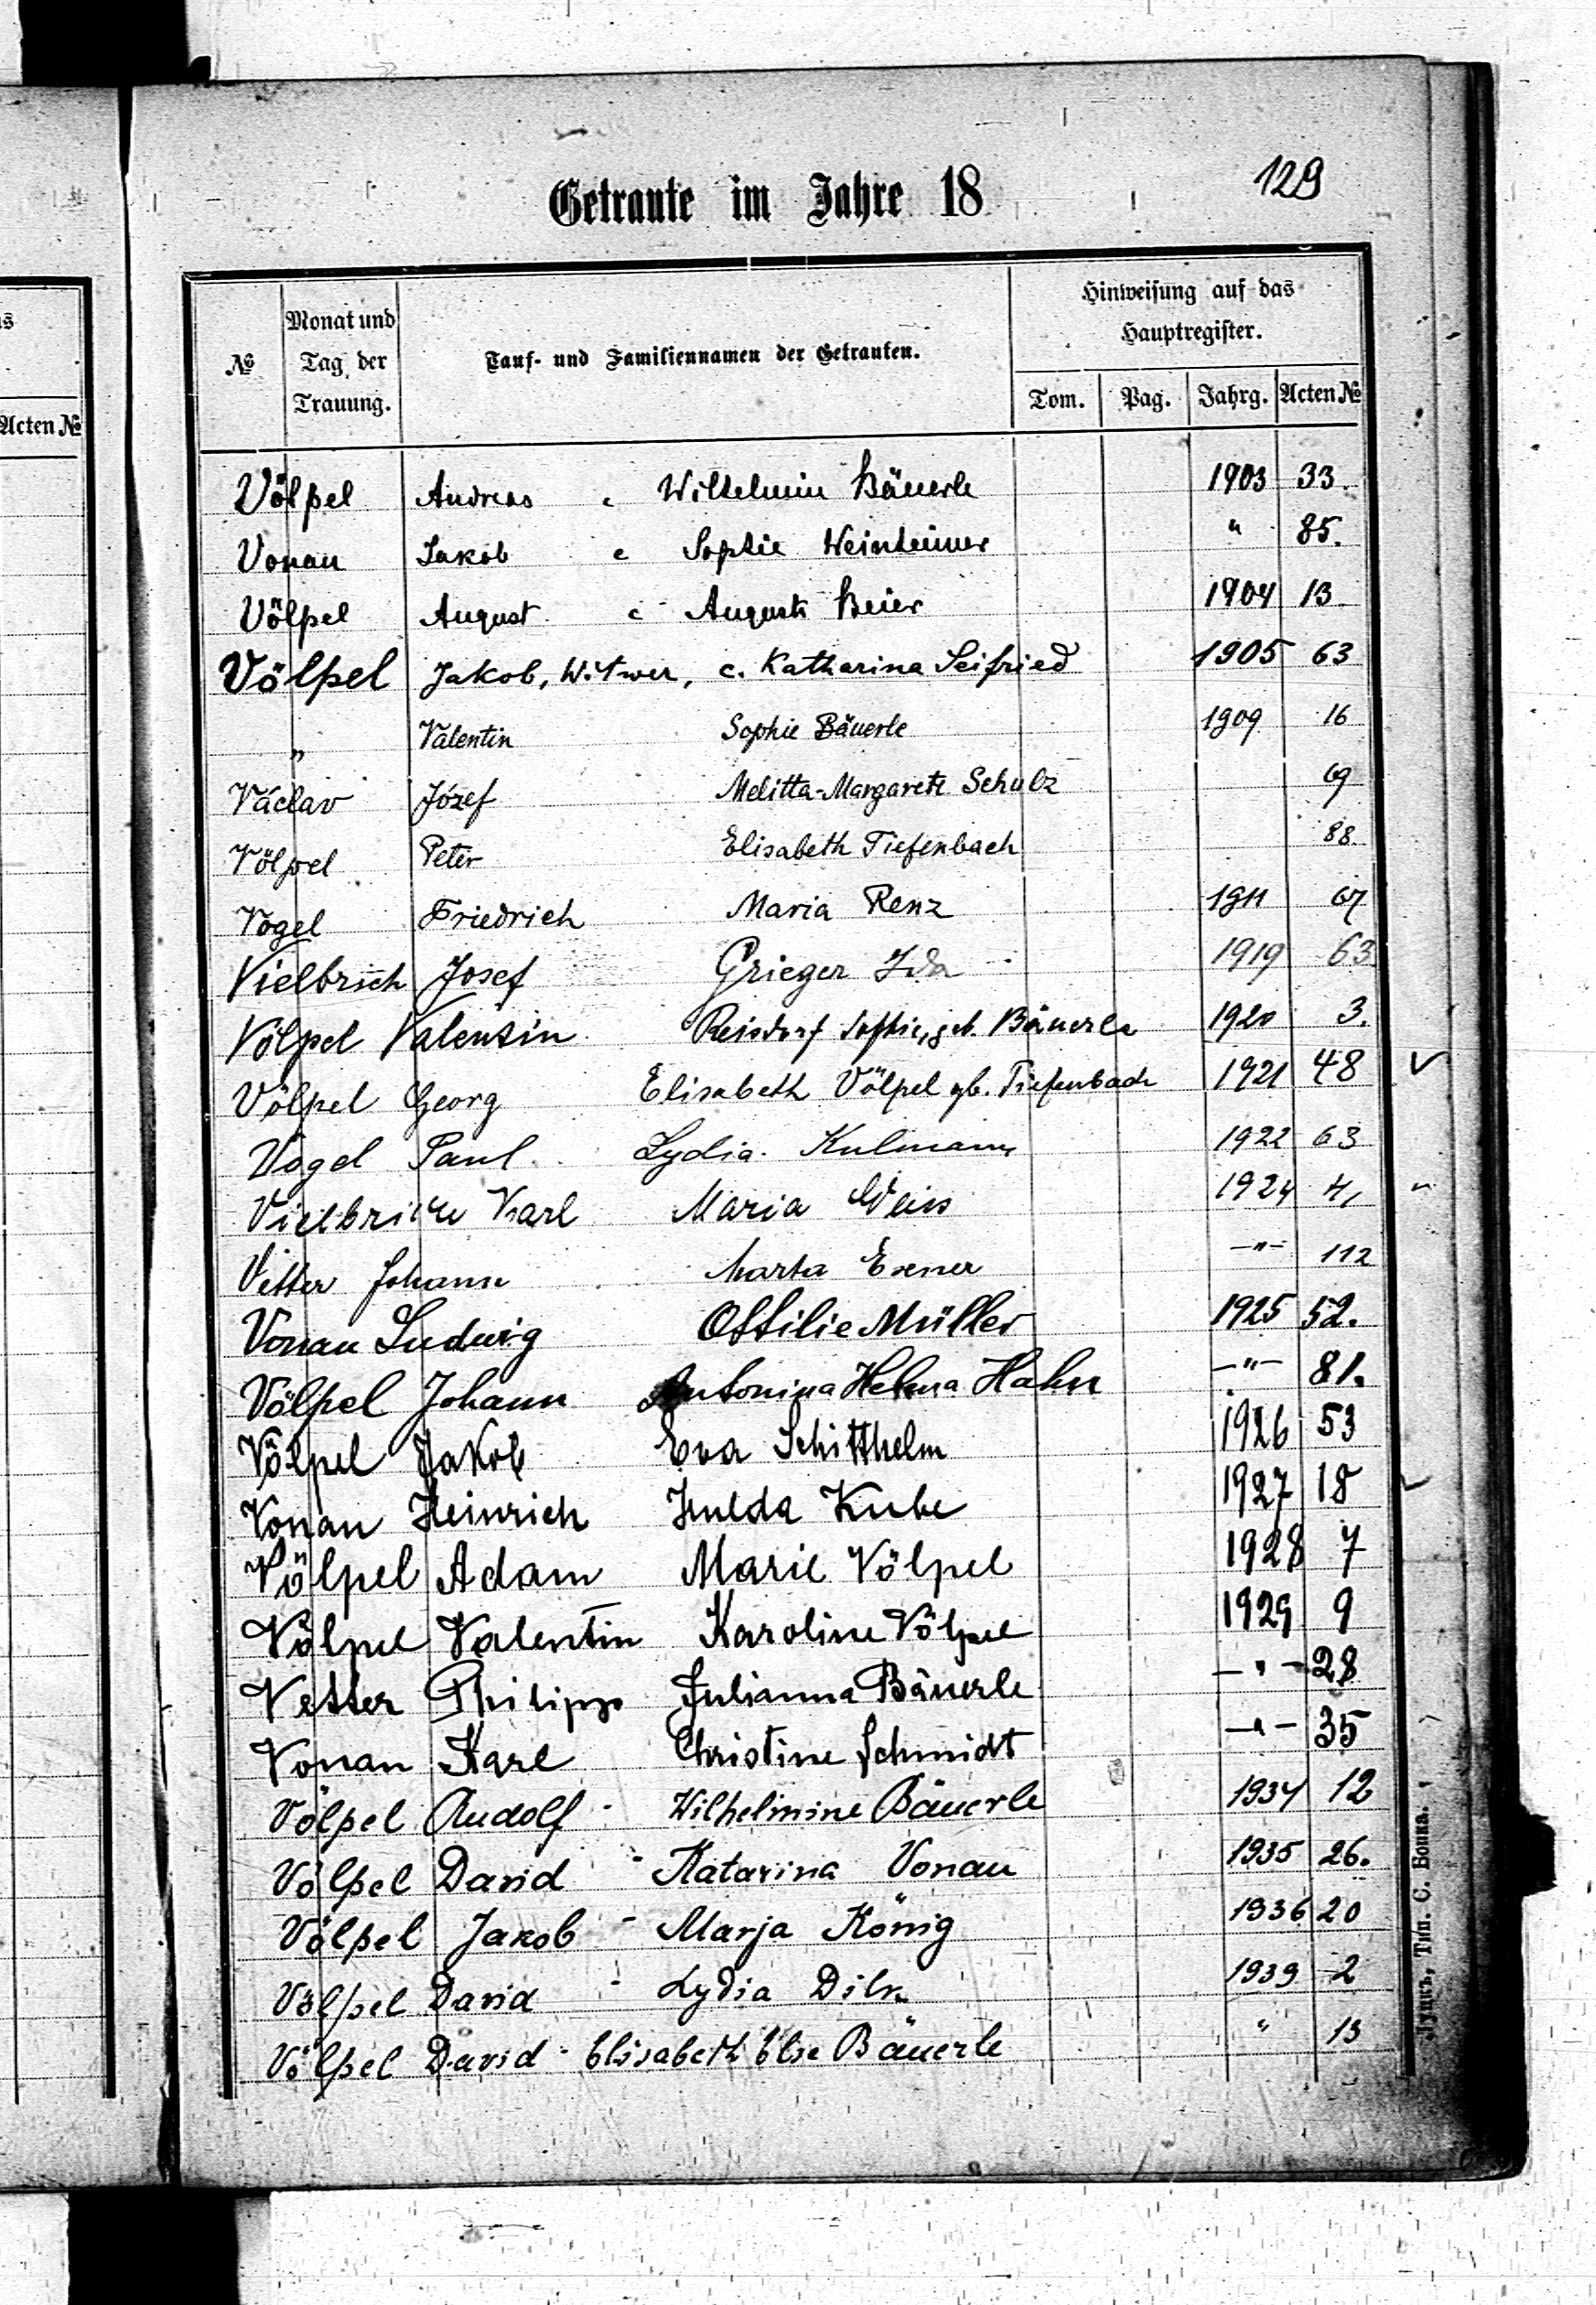 129
Getraute im Jahre 18
s
Acten №
№
Monat und
Tag der
Trauung.
Tauf- und Familiennamen der Getrauten.
Hinweisung auf das
Hauptregister.
Tom. Pag. Jahrg. Acten №
Völpel Andreas c Wilhelmin Bäuerle 1903 33.
Vonau Jakob c Sophie Weinheimer " 85.
Völpel August c Auguste Beier 1904 13.
Völpel Jakob, Witwer, c. Katharina Seifried 1905 63
" Valentin Sophie Bäuerle 1909 16
Václav Józef Melitta-Margarete Schulz 69
Völpel Peter Elisabeth Tiefenbach 88.
Vogel Friedrich Maria Renz 1911 67
Vielbrich Josef Grieger Ida 1919 63
Völpel Valentin Reisdorf Sophie, geb. Bäuerle 1920 3.
Völpel Georg Elisabeth Völpel gb. Tiefenbach 1921 48
Vogel Paul Lydia Kulmann 1922 63
Karl Maria Weiss 1924
Vetter Johann Marta Exner —"— 112
Vonau Ludwig Ottilie Müller 1925 52.
Völpel Johann Antonina Helma Hahn —"— 81.
Völpel Jakob Eva Schitthelm 1926 53
Vonau Heinrich Hulda Kube 1927 18
Völpel Adam Marie Völpel 1928 7
Völpel Valentin Karoline Völpel 1929 9
Vetter Philipp Julianna Bäuerle —"— 28
Vonau Karl Christine Schmidt —"— 35
Völpel Rudolf - Wilhelmine Bäuerle 1934 12
Völpel David - Katarina Vonau 1935 26.
Völpel Jakob - Marja König 1936 20
Völpel David - Lydia Dilk 1939 2
Völpel David - Elisabeth Else Bäuerle " 13
Луцкъ, Тип. С. Бонка.